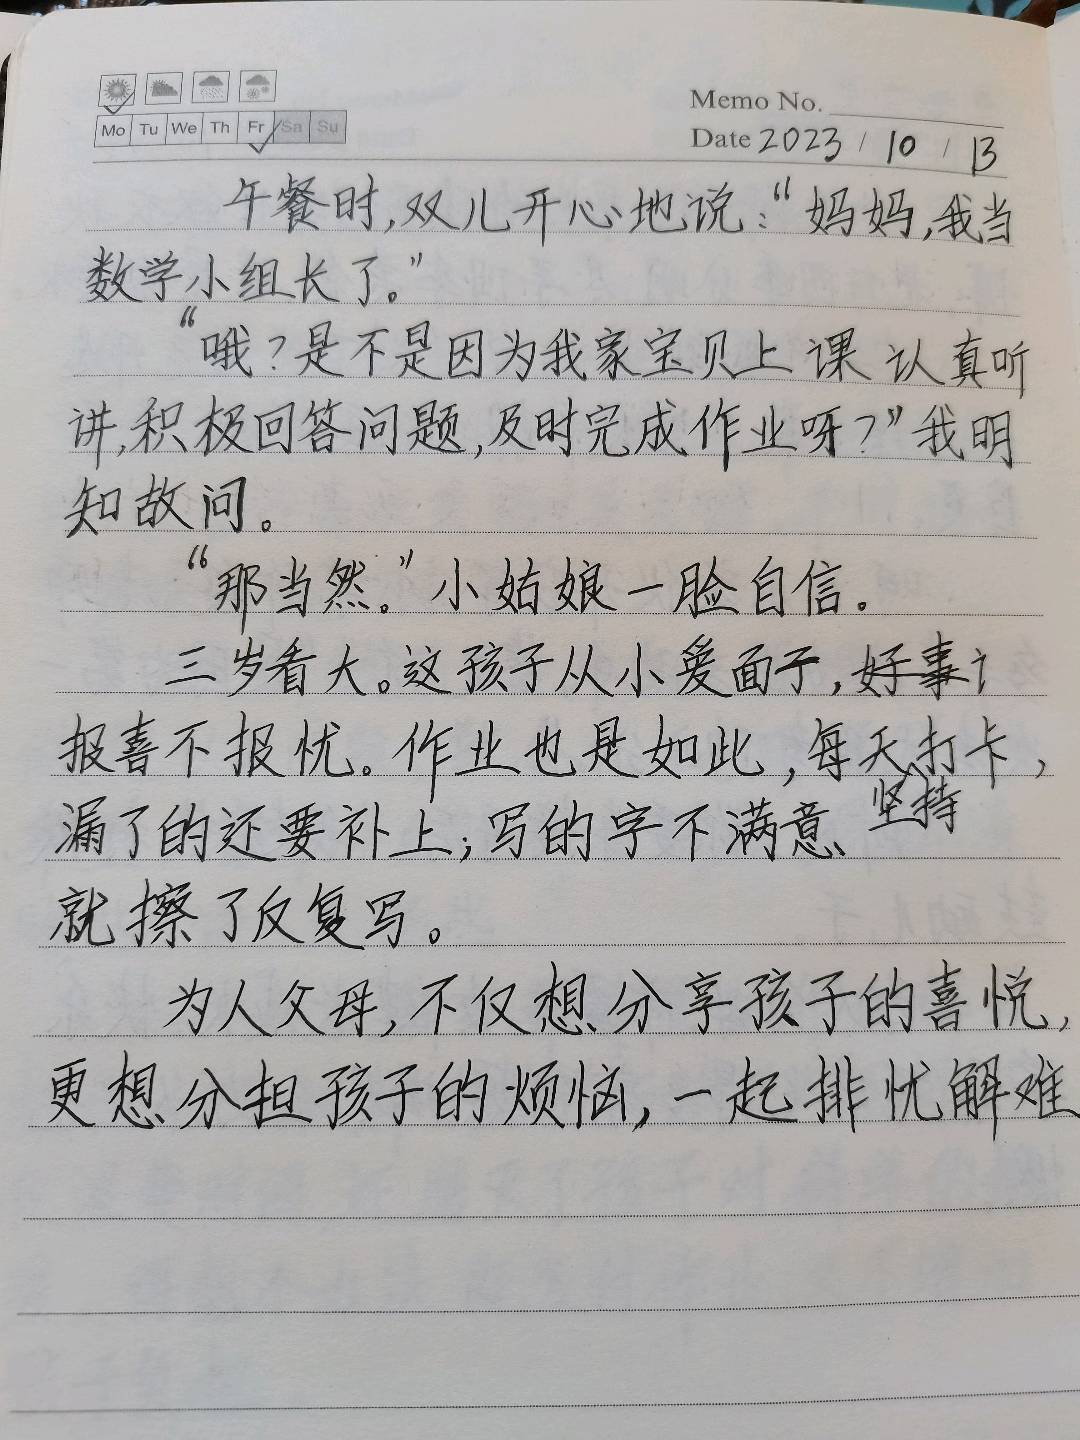 Memo No.
Mo Tu We Th Fr Sa Su
Date 2023 / 10 / 13
午餐时,双儿开心地说:“妈妈,我当
数学小组长了。”
“哦?是不是因为我家宝贝上课认真听
讲,积极回答问题,及时完成作业呀?”我明
知故问。
“那当然。”小姑娘一脸自信。
三岁看大。这孩子从小爱面子,好事讠
报喜不报忧。作业也是如此,每天打卡,
坚持
漏了的还要补上;写的字不满意、
就擦了反复写。
为人父母,不仅想分享孩子的喜悦,
更想分担孩子的烦恼,一起排忧解难